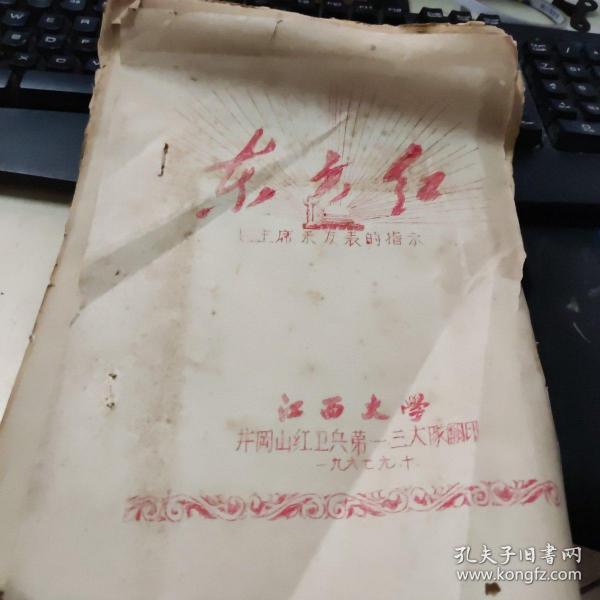 东方红
主席未发表的指示
江西大学
井冈山红卫兵第一三大队翻印
一九六七.九.十
孔夫子旧书网
www.kongfz.com